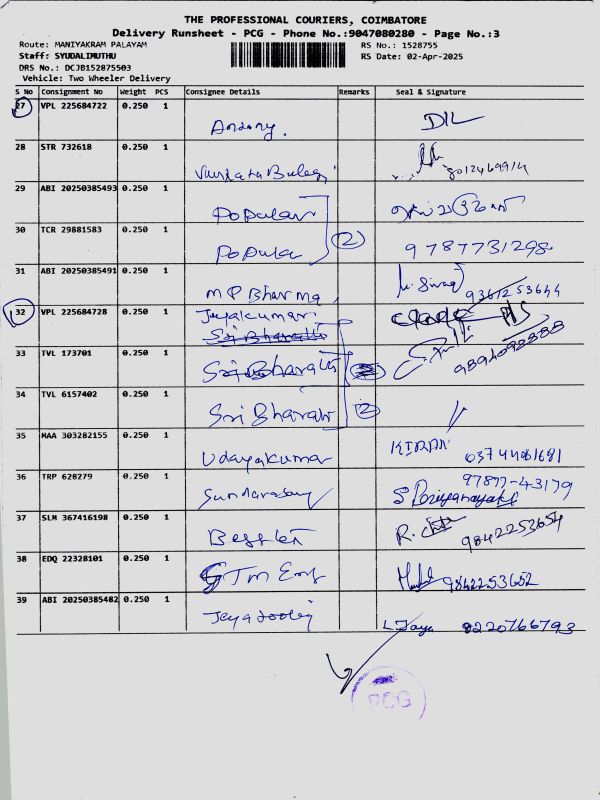 THE PROFESSIONAL COURIERS, COIMBATORE
Delivery Runsheet - PCG - Phone No.:9047080280 - Page No.:3
Route: MANIYAKRAM PALAYAM RS No.: 1528755
Staff: SYUDALIMUTHU RS Date: 02-Apr-2025
DRS No.: DCJB152875503
Vehicle: Two Wheeler Delivery
S No Consignment No Weight PCS Consignee Details Remarks Seal & Signature
27 VPL 225684722 0.250 1 Antony. DIL
28 STR 732618 0.250 1 8012469914
29 ABI 20250385493 0.250 1 Popular
30 TCR 29881583 0.250 1 Popular 2 9787731298
31 ABI 20250385491 0.250 1 M P Bharma 9361253644
32 VPL 225684728 0.250 1 Jeyakumar
Sri Bharath
33 TVL 173701 0.250 1 Sri Bharath
34 TVL 6157402 0.250 1 Sri Bharath 2
35 MAA 303282155 0.250 1 Udayakumar KIRAN
36 TRP 628279 0.250 1 Sundarasamy 97877-43179
37 SLM 367416198 0.250 1 R. 9842253654
38 EDQ 22328101 0.250 1 9842253652
39 ABI 20250385482 0.250 1 L Jaya 8220766793
PCG